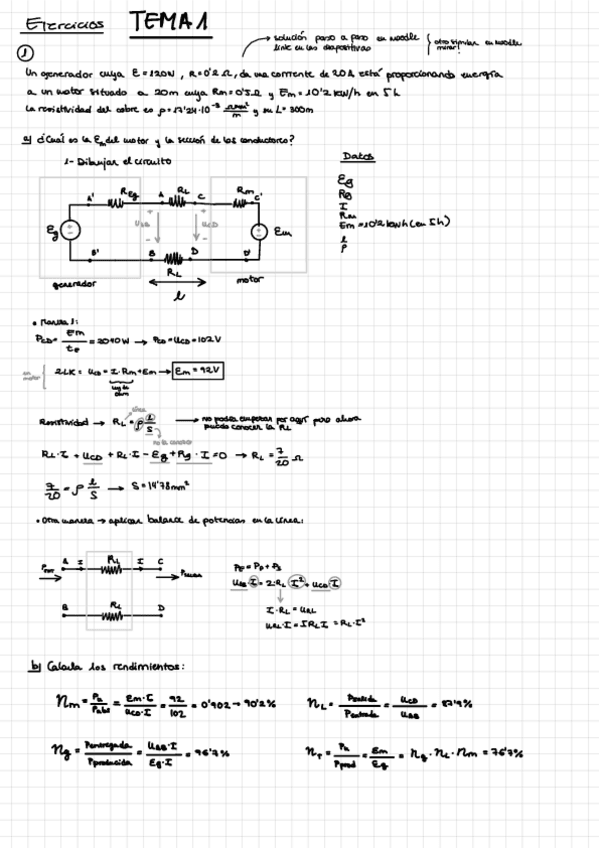 Ejercicios TEMA 1
→ solución paso a paso en moodle
link en las diapositivas
otro similar en moodle
mirar!
1
Un generador cuya E=120W, R=0'2 Ω, da una corriente de 20A está proporcionando energía
a un motor situado a 20m cuya Rm=0'5Ω y Em=10'2 kW/h en 5h
La resistividad del cobre es ρ=17'24·10⁻³ Ωmm²/m y su L=300m
a) ¿Cuál es la Em del motor y la sección de los conductores?
1- Dibujar el circuito
Datos
Eg
Rg
I
Rm
Em=10'2 kWh (en 5h)
l
ρ
A' REg A RL C Rm C'
Eg + UAB - + UCD - Em
B' B D D'
RL
generador motor
l
• Manera 1:
PCD = Em/te = 2040W → PCD=UCD=102V
en motor
2LK: UCD = I·Rm+Em → Em=92V
ley de ohm
línea
Resistividad → RL = ρ l/S → no podía empezar por aquí pero ahora
puedo conocer la RL
no la conozco
RL·I + UCD + RL·I - Eg + Rg·I = 0 → RL = 7/20 Ω
7/20 = ρ l/S → S=14'78mm²
• Otra manera → aplicar balance de potencias en la línea:
A I RL I C
B RL D
PE = PP + PS
UAB·I = 2·RL·I² + UCD·I
I·RL = URL
URL·I = I RL I = RL·I²
b) Calcula los rendimientos:
ηm = Pu/Pabs = Em·I/UCD·I = 92/102 = 0'902 → 90'2%
ηL = Psalida/Pentrada = UCD/UAB = 87'9%
ηg = Pentregada/Pproducida = UAB·I/Eg·I = 96'7%
ηT = Pu/Pprod = Em/Eg = ηg·ηL·ηm = 76'7%